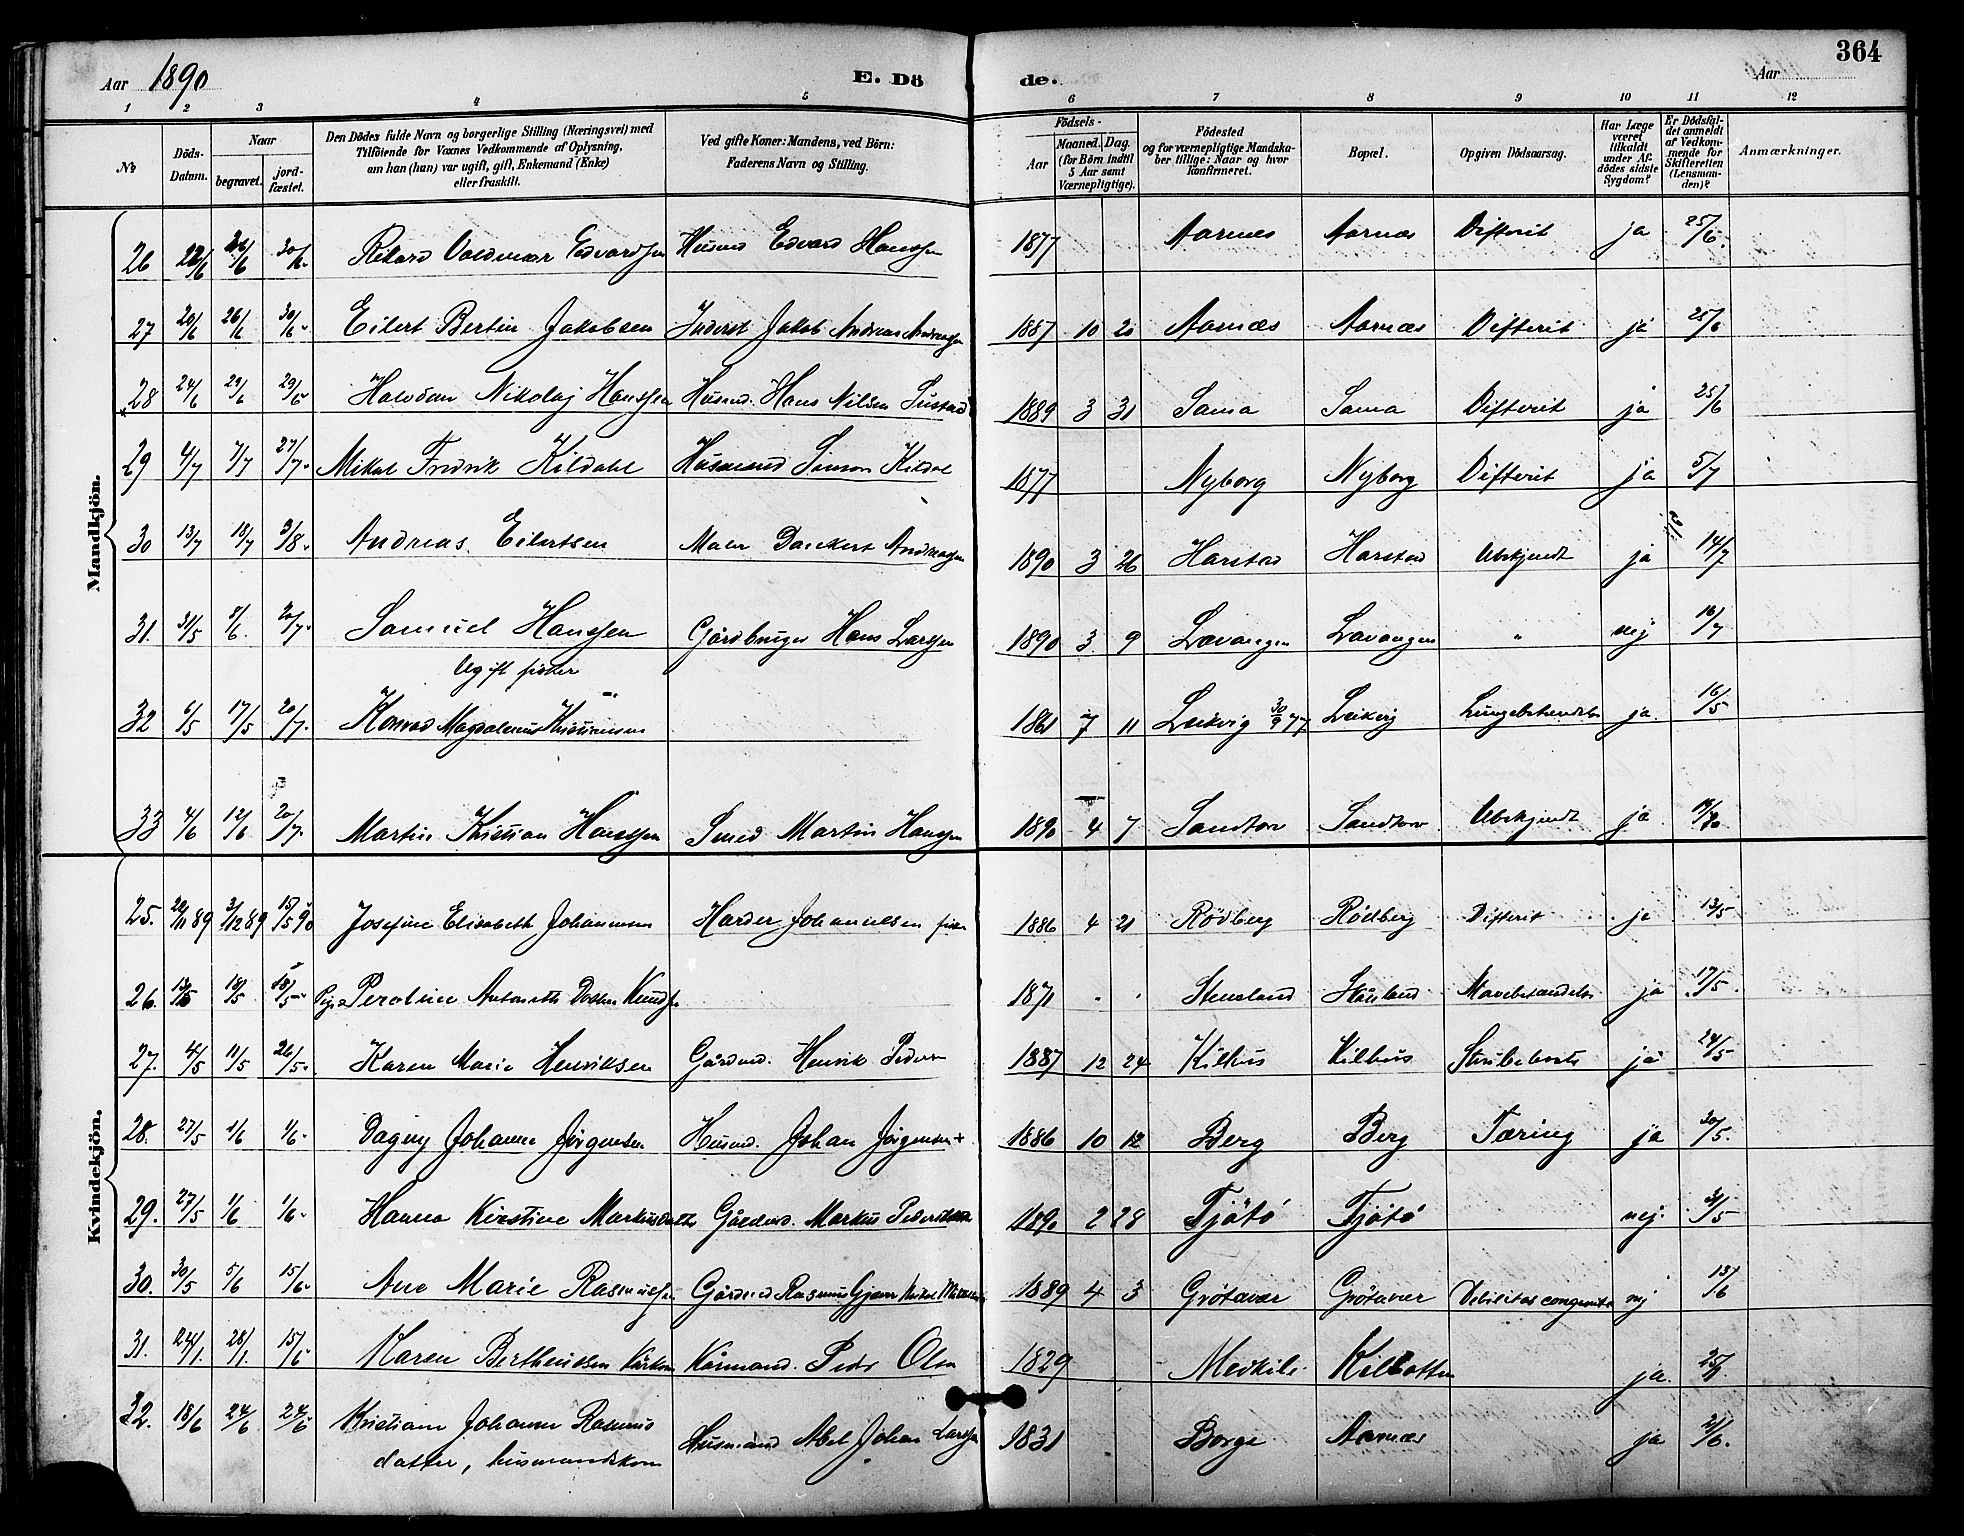 364
Aar 1890 E. Döde. Aar
1 2 3 4 5 6 7 8 9 10 11 12
№ Döds-Datum. Naar begravet. jordfæstet. Den Dödes fulde Navn og borgerlige Stilling (Næringsvei) med Tilföiende for Voxnes Vedkommende af Oplysning, om han (hun) var ugift, gift, Enkemand (Enke) eller fraskilt. Ved gifte Koner: Mandens, ved Börn: Faderens Navn og Stilling. Födsels- Aar Maaned. Dag. (for Börn indtil 5 Aar samt Værnepligtige). Födested og for værnepligtige Mandskaber tillige: Naar og hvor konfirmeret. Bopæl. Opgiven Dödsaarsag. Har Læge været tilkaldt under Afdödes sidste Sygdom? Er Dödsfaldet anmeldt af Vedkommende for Skifteretten (Lensmanden)? Anmærkninger.
Mandkjön.
26 26/6 30/6 Rikard Valdemar Edvardsen Husmd Edvard Hanssen 1877 Aarnæs Aarnæs Difterit ja 25/6
27 20/6 26/6 30/6 Eilert Bertin Jakobsen Inderst Jakob Andreas Andreassen 1887 10 20 Aarnæs Aarnæs Difterit ja 25/6
28 24/6 29/6 29/6 Halvdan Nikolaj Hanssen Husmd. Hans Nilsen 1889 3 31 Sama Sama Difterit ja 25/6
29 4/7 7/7 27/7 Mikal Fredrik Kildahl Husmand Simon Kildal 1877 Nyborg Nyborg Difterit ja 5/7
30 13/7 18/7 3/8 Andreas Eilertsen Maler Danckert Andreassen 1890 3 26 Harstad Harstad Ubekjendt ja 14/7
31. 31/5 8/6. 20/7 Samuel Hanssen Gårdbruger Hans Larssen 1890 3 9 Lavangen Lavangen " nej 16/7
Ugift fisker
32 6/5 17/5 20/7 Konrad Magdalenus Kristiansen 1861 7 11 Leikvig 30/9 77 Leikvig Lungebetændelse ja 16/5
33 4/6 12/6 20/7 Martin Kristian Hanssen Smed Martin Hanssen 1890 4 7 Sandtorv Sandtorv Ubekjendt ja
Kvindekjön.
25. 89 3/12 89 15/5 90 Josefine Elisabeth Johannesen Harder Johannesen fisker 1886 4 21 Rödberg Rödberg Difterit ja 13/5
26. 18/5 18/5 Pige Peroline Antonette Knudsen 1871 Stensland Stensland Mavebetændelse ja 17/5.
27. 4/5 11/5 26/5 Karen Marie Henriksen Gårdmd. Henrik Pedersen 1887 12 24 Kilhus Kilhus Strubehoste ja 24/5
28. 27/5 1/6 1/6 Dagny Johanne Jörgensen Husmd. Johan Jörgensen + 1886 10 12 Berg Berg Tæring ja 30/5.
29. 27/5 1/6 1/6 Hanna Kirstine Markusdatter Gårdmd. Markus Pedersen 1890 2 28 Tjötö Tjötö nej. 31/5
30. 30/5 5/6 15/6 Ane Marie Rasmussen Gårdmd Rasmus 1889 4 3 Grötavær Grötavær Debilitas congenita nej 13/6
31. 24/1. 28/1. 15/6 Karen Bertheussen Kårkone Kårmand. Peder Olsen 1829 Medkile Kilbotten ja.
32. 18/6 24/6 24/6 Kristiane Johanne Rasmus Husmand Abel Johan Larssen 1831 Borge Aarnæs ja 21/6.
datter, husmandskone